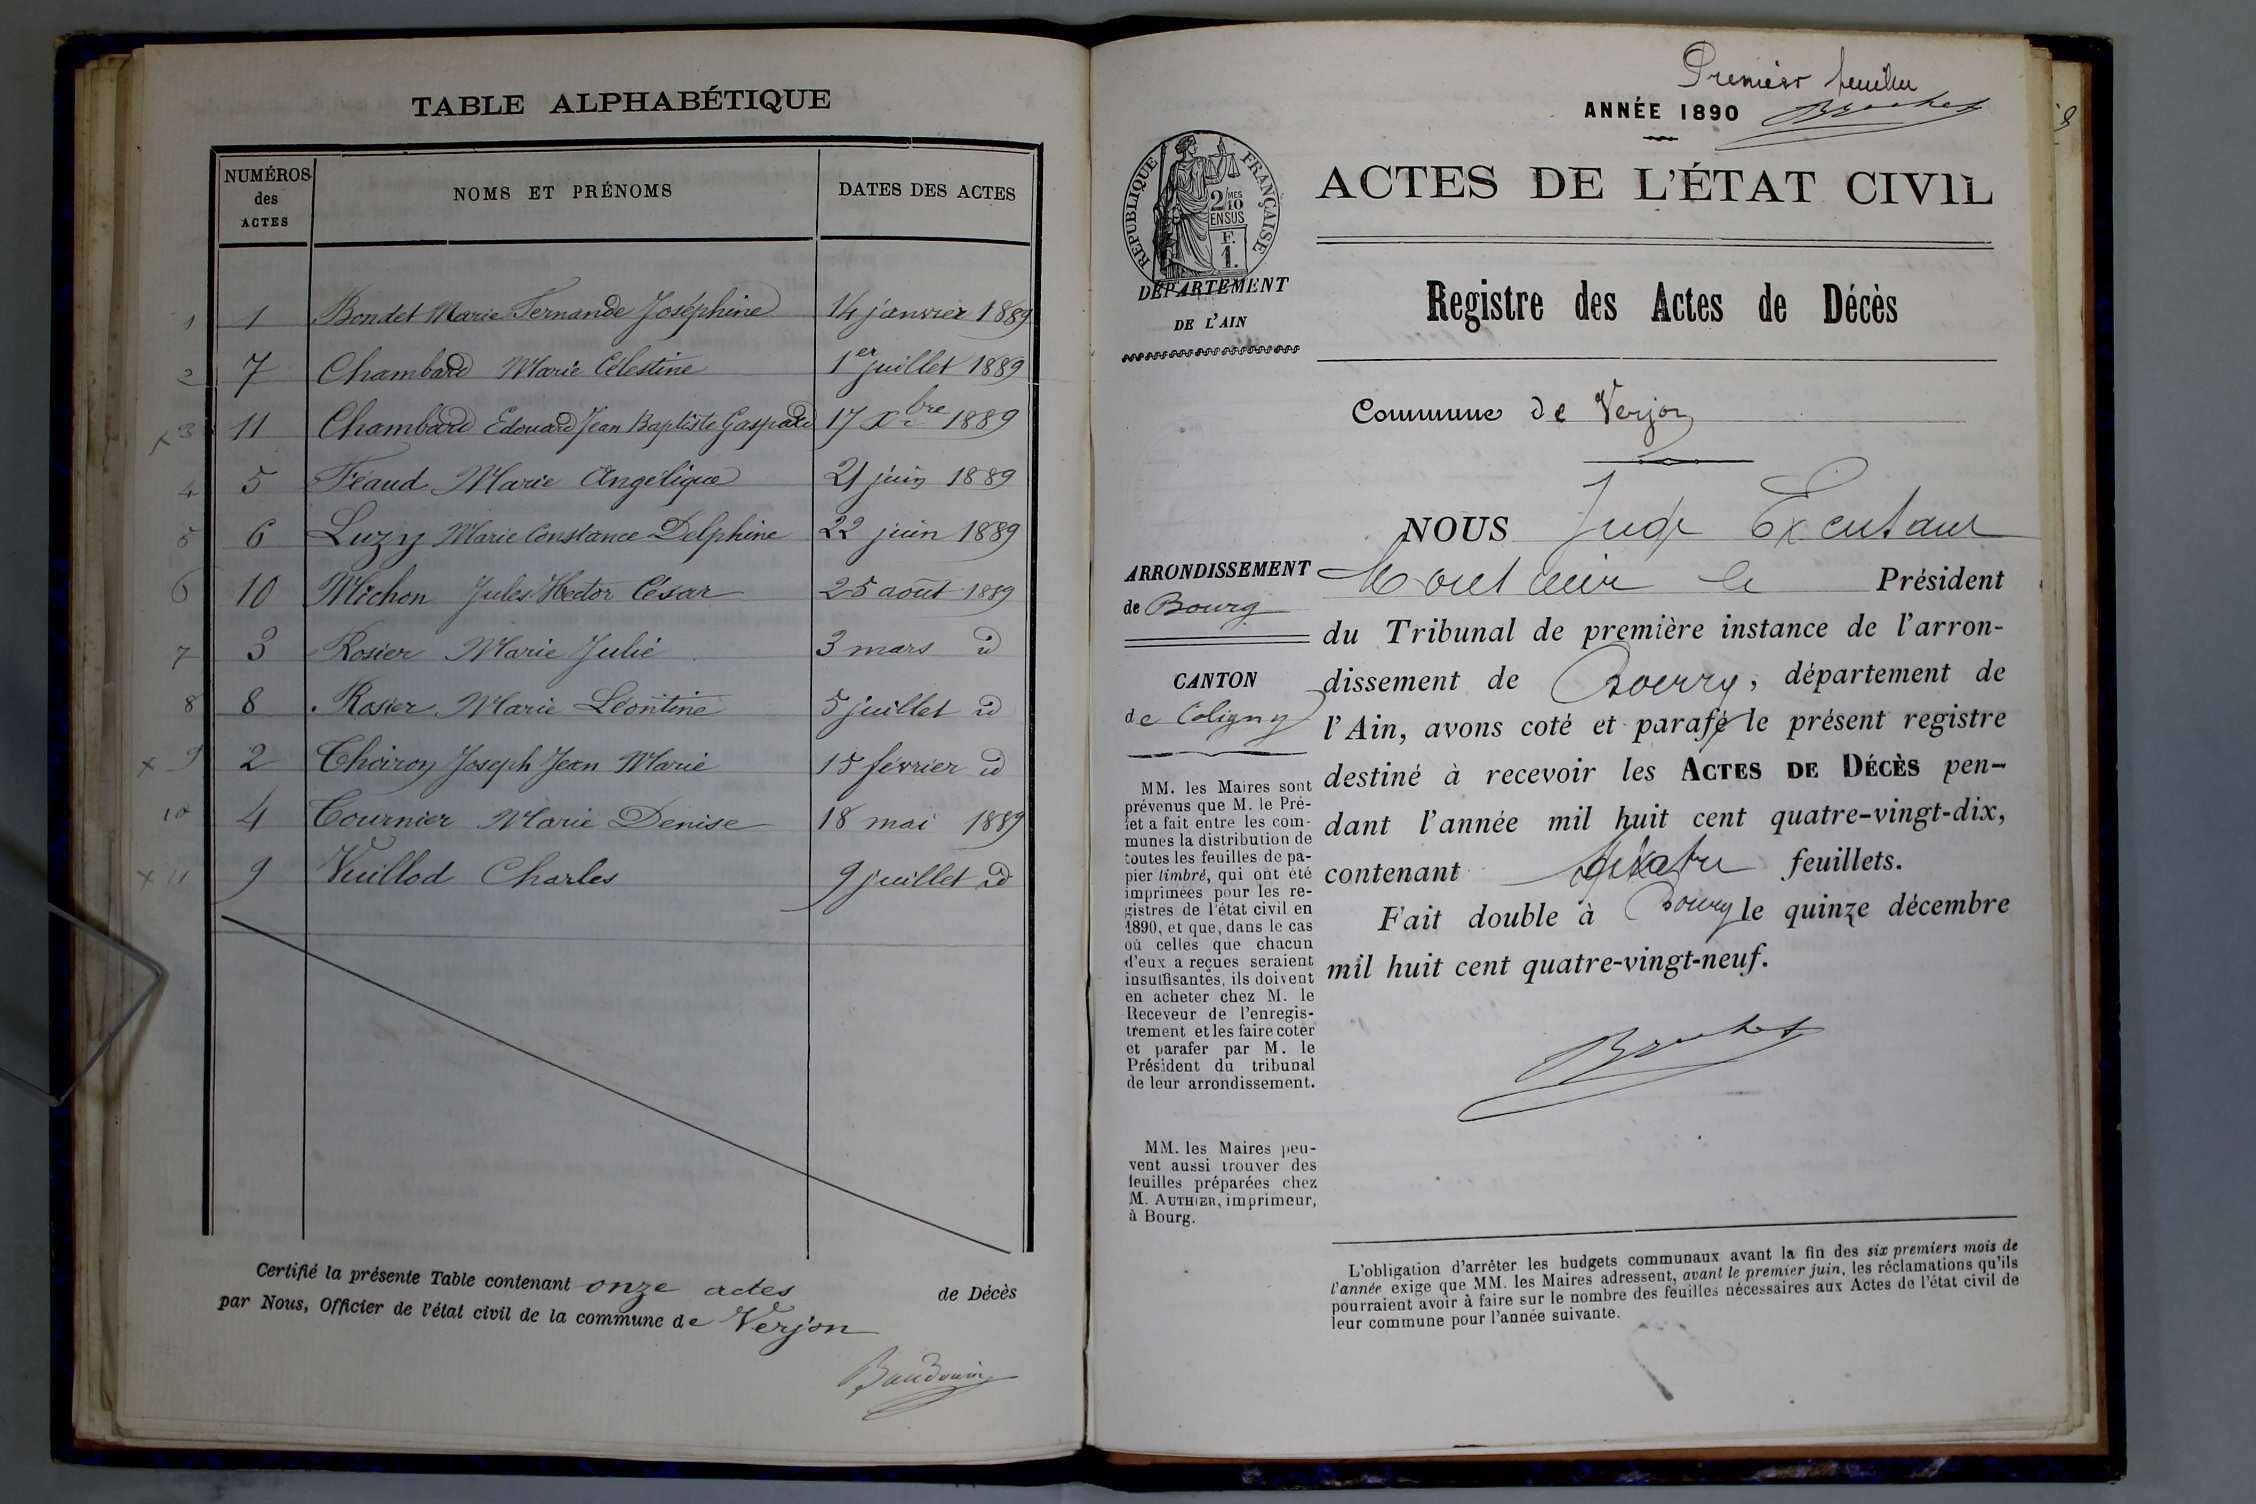 TABLE ALPHABÉTIQUE
NUMÉROS des ACTES NOMS ET PRÉNOMS DATES DES ACTES
1 1 Bondet Marie Fernande Joséphine 14 janvier 1889
2 7 Chambard Marie Célestine 1er juillet 1889
x 3 11 Chambard Edouard Jean Baptiste Gaspard 17 Xbre 1889
4 5 Féaud Marie Angélique 21 juin 1889
5 6 Luzy Marie Constance Delphine 22 juin 1889
6 10 Michon Jules Hector César 25 août 1889
7 3 Rosier Marie Julie 3 mars id
8 8 Rosier Marie Léontine 5 juillet id
x 9 2 Thoiron Joseph Jean Marie 15 février id
10 4 Tournier Marie Denise 18 mai 1889
x 11 9 Vuillod Charles 9 juillet id
Certifié la présente Table contenant onze actes de Décès
par Nous, Officier de l'état civil de la commune de Verjon
Baudouin
Premier feuillet
ANNÉE 1890 Brochet
RÉPUBLIQUE FRANÇAISE
2/10 MES
EN SUS
F.
1.
ACTES DE L'ÉTAT CIVIL
DÉPARTEMENT
DE L'AIN
Registre des Actes de Décès
Commune de Verjon
ARRONDISSEMENT
de Bourg
CANTON
de Coligny
MM. les Maires sont
prévenus que M. le Pré-
fet a fait entre les com-
munes la distribution de
toutes les feuilles de pa-
pier timbré, qui ont été
imprimées pour les re-
gistres de l'état civil en
1890, et que, dans le cas
où celles que chacun
d'eux a reçues seraient
insuffisantes, ils doivent
en acheter chez M. le
Receveur de l'enregis-
trement et les faire coter
et parafer par M. le
Président du tribunal
de leur arrondissement.
MM. les Maires peu-
vent aussi trouver des
feuilles préparées chez
M. AUTHIER, imprimeur,
à Bourg.
NOUS Juge
le Président
du Tribunal de première instance de l'arron-
dissement de Bourg, département de
l'Ain, avons coté et parafé le présent registre
destiné à recevoir les ACTES DE DÉCÈS pen-
dant l'année mil huit cent quatre-vingt-dix,
contenant feuillets.
Fait double à Bourg le quinze décembre
mil huit cent quatre-vingt-neuf.
Brochet
L'obligation d'arrêter les budgets communaux avant la fin des six premiers mois de
l'année exige que MM. les Maires adressent, avant le premier juin, les réclamations qu'ils
pourraient avoir à faire sur le nombre des feuilles nécessaires aux Actes de l'état civil de
leur commune pour l'année suivante.